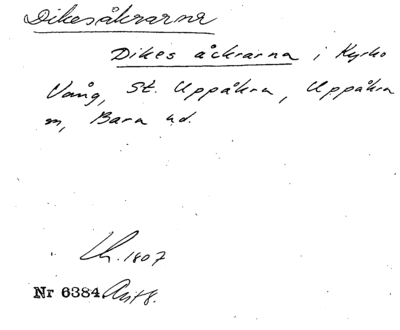 Dikesåkrarna
Dikes åckrarna i Kyrko
Vång, St. Uppåkra, Uppåkra
m, Bara hd.
Lh. 1807
Nr 6384 Akt 8.